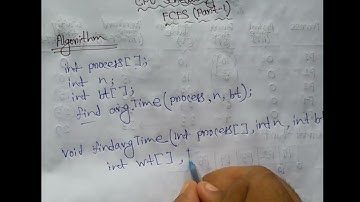 FCFS (Part-1)
Algorithm
int process[];
int n;
int bt[];
find avgTime (process, n, bt);
void findavgTime (int process[], int n, int bt
int wt[] ,